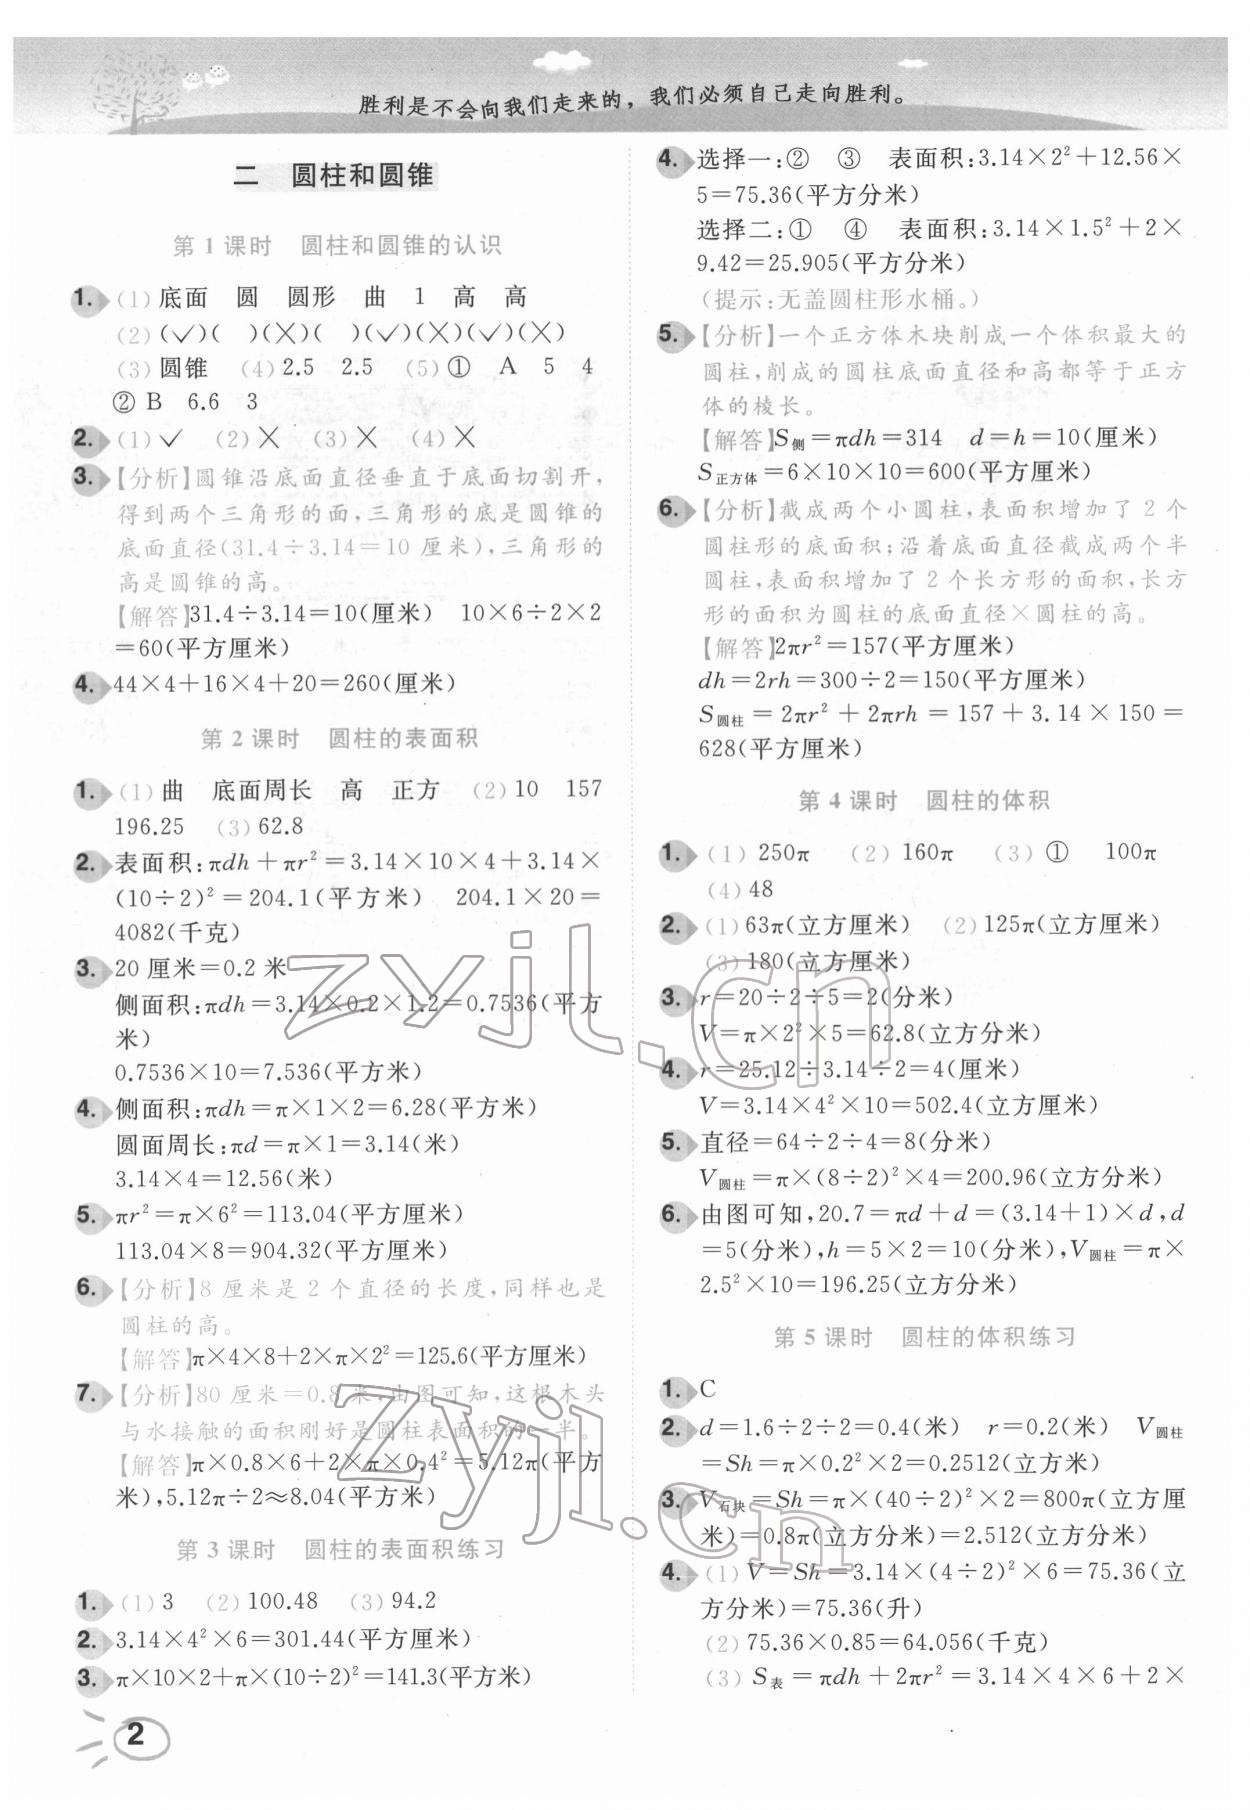 胜利是不会向我们走来的，我们必须自己走向胜利。
二 圆柱和圆锥
第1课时 圆柱和圆锥的认识
1. (1)底面 圆 圆形 曲 1 高 高
(2)(✓)( )(✕)( )(✓)(✕)(✓)(✕)
(3)圆锥 (4)2.5 2.5 (5)① A 5 4
② B 6.6 3
2. (1)✓ (2)✕ (3)✕ (4)✕
3. 【分析】圆锥沿底面直径垂直于底面切割开，
得到两个三角形的面，三角形的底是圆锥的
底面直径(31.4÷3.14=10 厘米)，三角形的
高是圆锥的高。
【解答】31.4÷3.14=10(厘米) 10×6÷2×2
=60(平方厘米)
4. 44×4+16×4+20=260(厘米)
第2课时 圆柱的表面积
1. (1)曲 底面周长 高 正方 (2)10 157
196.25 (3)62.8
2. 表面积:πdh+πr²=3.14×10×4+3.14×
(10÷2)²=204.1(平方米) 204.1×20=
4082(千克)
3. 20 厘米=0.2 米
侧面积:πdh=3.14×0.2×1.2=0.7536(平方
米)
0.7536×10=7.536(平方米)
4. 侧面积:πdh=π×1×2=6.28(平方米)
圆面周长:πd=π×1=3.14(米)
3.14×4=12.56(米)
5. πr²=π×6²=113.04(平方厘米)
113.04×8=904.32(平方厘米)
6. 【分析】8 厘米是 2 个直径的长度，同样也是
圆柱的高。
【解答】π×4×8+2×π×2²=125.6(平方厘米)
7. 【分析】80 厘米=0.8 米，由图可知，这根木头
与水接触的面积刚好是圆柱表面积的一半。
【解答】π×0.8×6+2×π×0.4²=5.12π(平方
米),5.12π÷2≈8.04(平方米)
第3课时 圆柱的表面积练习
1. (1)3 (2)100.48 (3)94.2
2. 3.14×4²×6=301.44(平方厘米)
3. π×10×2+π×(10÷2)²=141.3(平方米)
4. 选择一:② ③ 表面积:3.14×2²+12.56×
5=75.36(平方分米)
选择二:① ④ 表面积:3.14×1.5²+2×
9.42=25.905(平方分米)
(提示:无盖圆柱形水桶。)
5. 【分析】一个正方体木块削成一个体积最大的
圆柱，削成的圆柱底面直径和高都等于正方
体的棱长。
【解答】S侧=πdh=314 d=h=10(厘米)
S正方体=6×10×10=600(平方厘米)
6. 【分析】截成两个小圆柱，表面积增加了 2 个
圆柱形的底面积；沿着底面直径截成两个半
圆柱，表面积增加了 2 个长方形的面积，长方
形的面积为圆柱的底面直径×圆柱的高。
【解答】2πr²=157(平方厘米)
dh=2rh=300÷2=150(平方厘米)
S圆柱=2πr²+2πrh=157+3.14×150=
628(平方厘米)
第4课时 圆柱的体积
1. (1)250π (2)160π (3)① 100π
(4)48
2. (1)63π(立方厘米) (2)125π(立方厘米)
(3)180(立方厘米)
3. r=20÷2÷5=2(分米)
V=π×2²×5=62.8(立方分米)
4. r=25.12÷3.14÷2=4(厘米)
V=3.14×4²×10=502.4(立方厘米)
5. 直径=64÷2÷4=8(分米)
V圆柱=π×(8÷2)²×4=200.96(立方分米)
6. 由图可知,20.7=πd+d=(3.14+1)×d,d
=5(分米),h=5×2=10(分米),V圆柱=π×
2.5²×10=196.25(立方分米)
第5课时 圆柱的体积练习
1. C
2. d=1.6÷2÷2=0.4(米) r=0.2(米) V圆柱
=Sh=π×0.2²×2=0.2512(立方米)
3. V石块=Sh=π×(40÷2)²×2=800π(立方厘
米)=0.8π(立方分米)=2.512(立方分米)
4. (1)V=Sh=3.14×(4÷2)²×6=75.36(立
方分米)=75.36(升)
(2)75.36×0.85=64.056(千克)
(3)S表=πdh+2πr²=3.14×4×6+2×
2
zyjl.cn
zyjl.cn